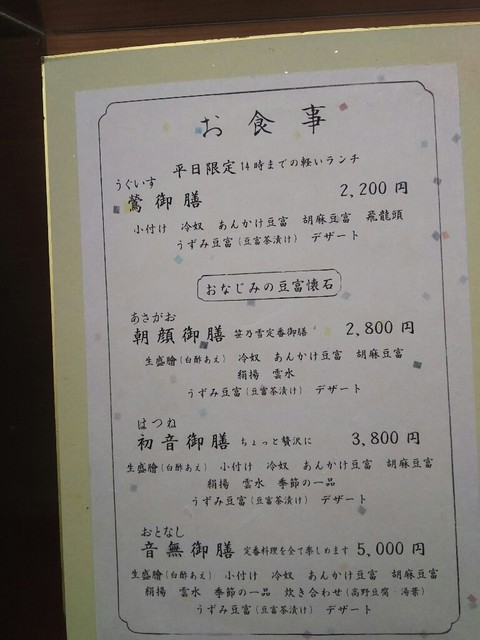 お食事
平日限定14時までの軽いランチ
うぐいす
鶯御膳 2,200円
小付け 冷奴 あんかけ豆富 胡麻豆富 飛龍頭
うずみ豆富(豆富茶漬け) デザート
おなじみの豆富懐石
あさがお
朝顔御膳 笹乃雪定番御膳 2,800円
生盛膾(白酢あえ) 冷奴 あんかけ豆富 胡麻豆富
絹揚 雲水
うずみ豆富(豆富茶漬け) デザート
はつね
初音御膳 ちょっと贅沢に 3,800円
生盛膾(白酢あえ) 小付け 冷奴 あんかけ豆富 胡麻豆富
絹揚 雲水 季節の一品
うずみ豆富(豆富茶漬け) デザート
おとなし
音無御膳 定番料理を全て楽しめます 5,000円
生盛膾(白酢あえ) 小付け 冷奴 あんかけ豆富 胡麻豆富
絹揚 雲水 季節の一品 炊き合わせ(高野豆腐・湯葉)
うずみ豆富(豆富茶漬け) デザート